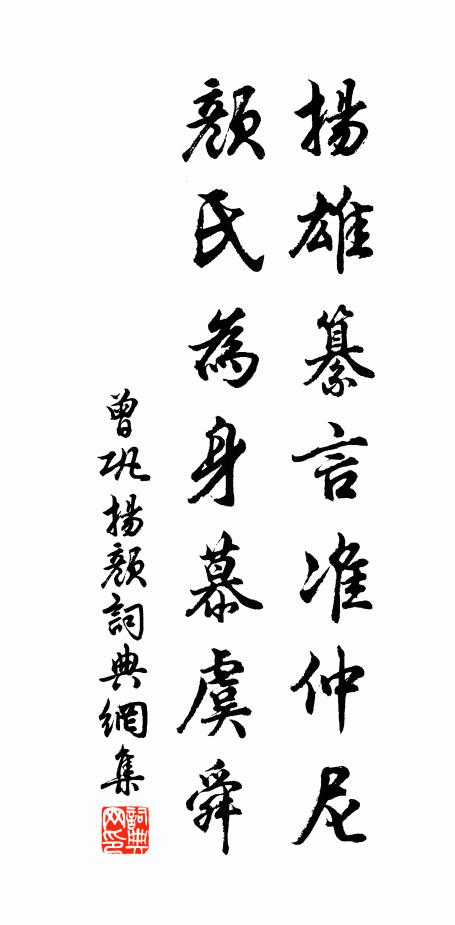 揚雄纂言准仲尼
顏氏為身慕虞舜
曾巩揚顏詞典網集
詞典网印